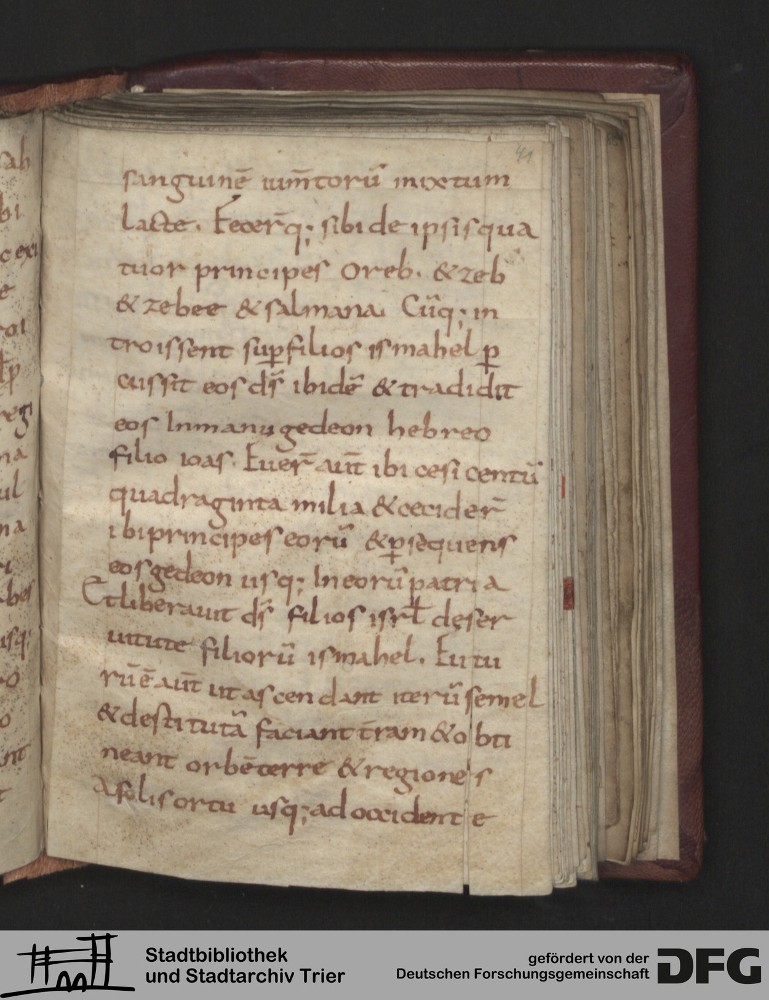 41
sanguinē ium̄torū mixtum
lacte. Fecer̄q; sibi de ipsis qua
tuor principes oreb. & zeb
& zebee & salmana. Cūq; in
troissent sup̱ filios ismahel p̱
cussit eos ds̄ ibidē & tradidit
eos In manu gedeon hebreo
filio ioas. Fuer̄ aūt ibi cesi centū
quadraginta milia & cecider̄
ibi principes eorū & p̱sequens
eos gedeon usq; In eorū patria
Et liberauit ds̄ filios isrł de ser
uitute filiorū ismahel. Futu
rū ē aūt ut ascendant iterū semel
& destitutā faciant t̄ram & obti
neant orbē terre & regiones
A solis ortu usq; ad occidente
Stadtbibliothek
und Stadtarchiv Trier
gefördert von der
Deutschen Forschungsgemeinschaft
DFG